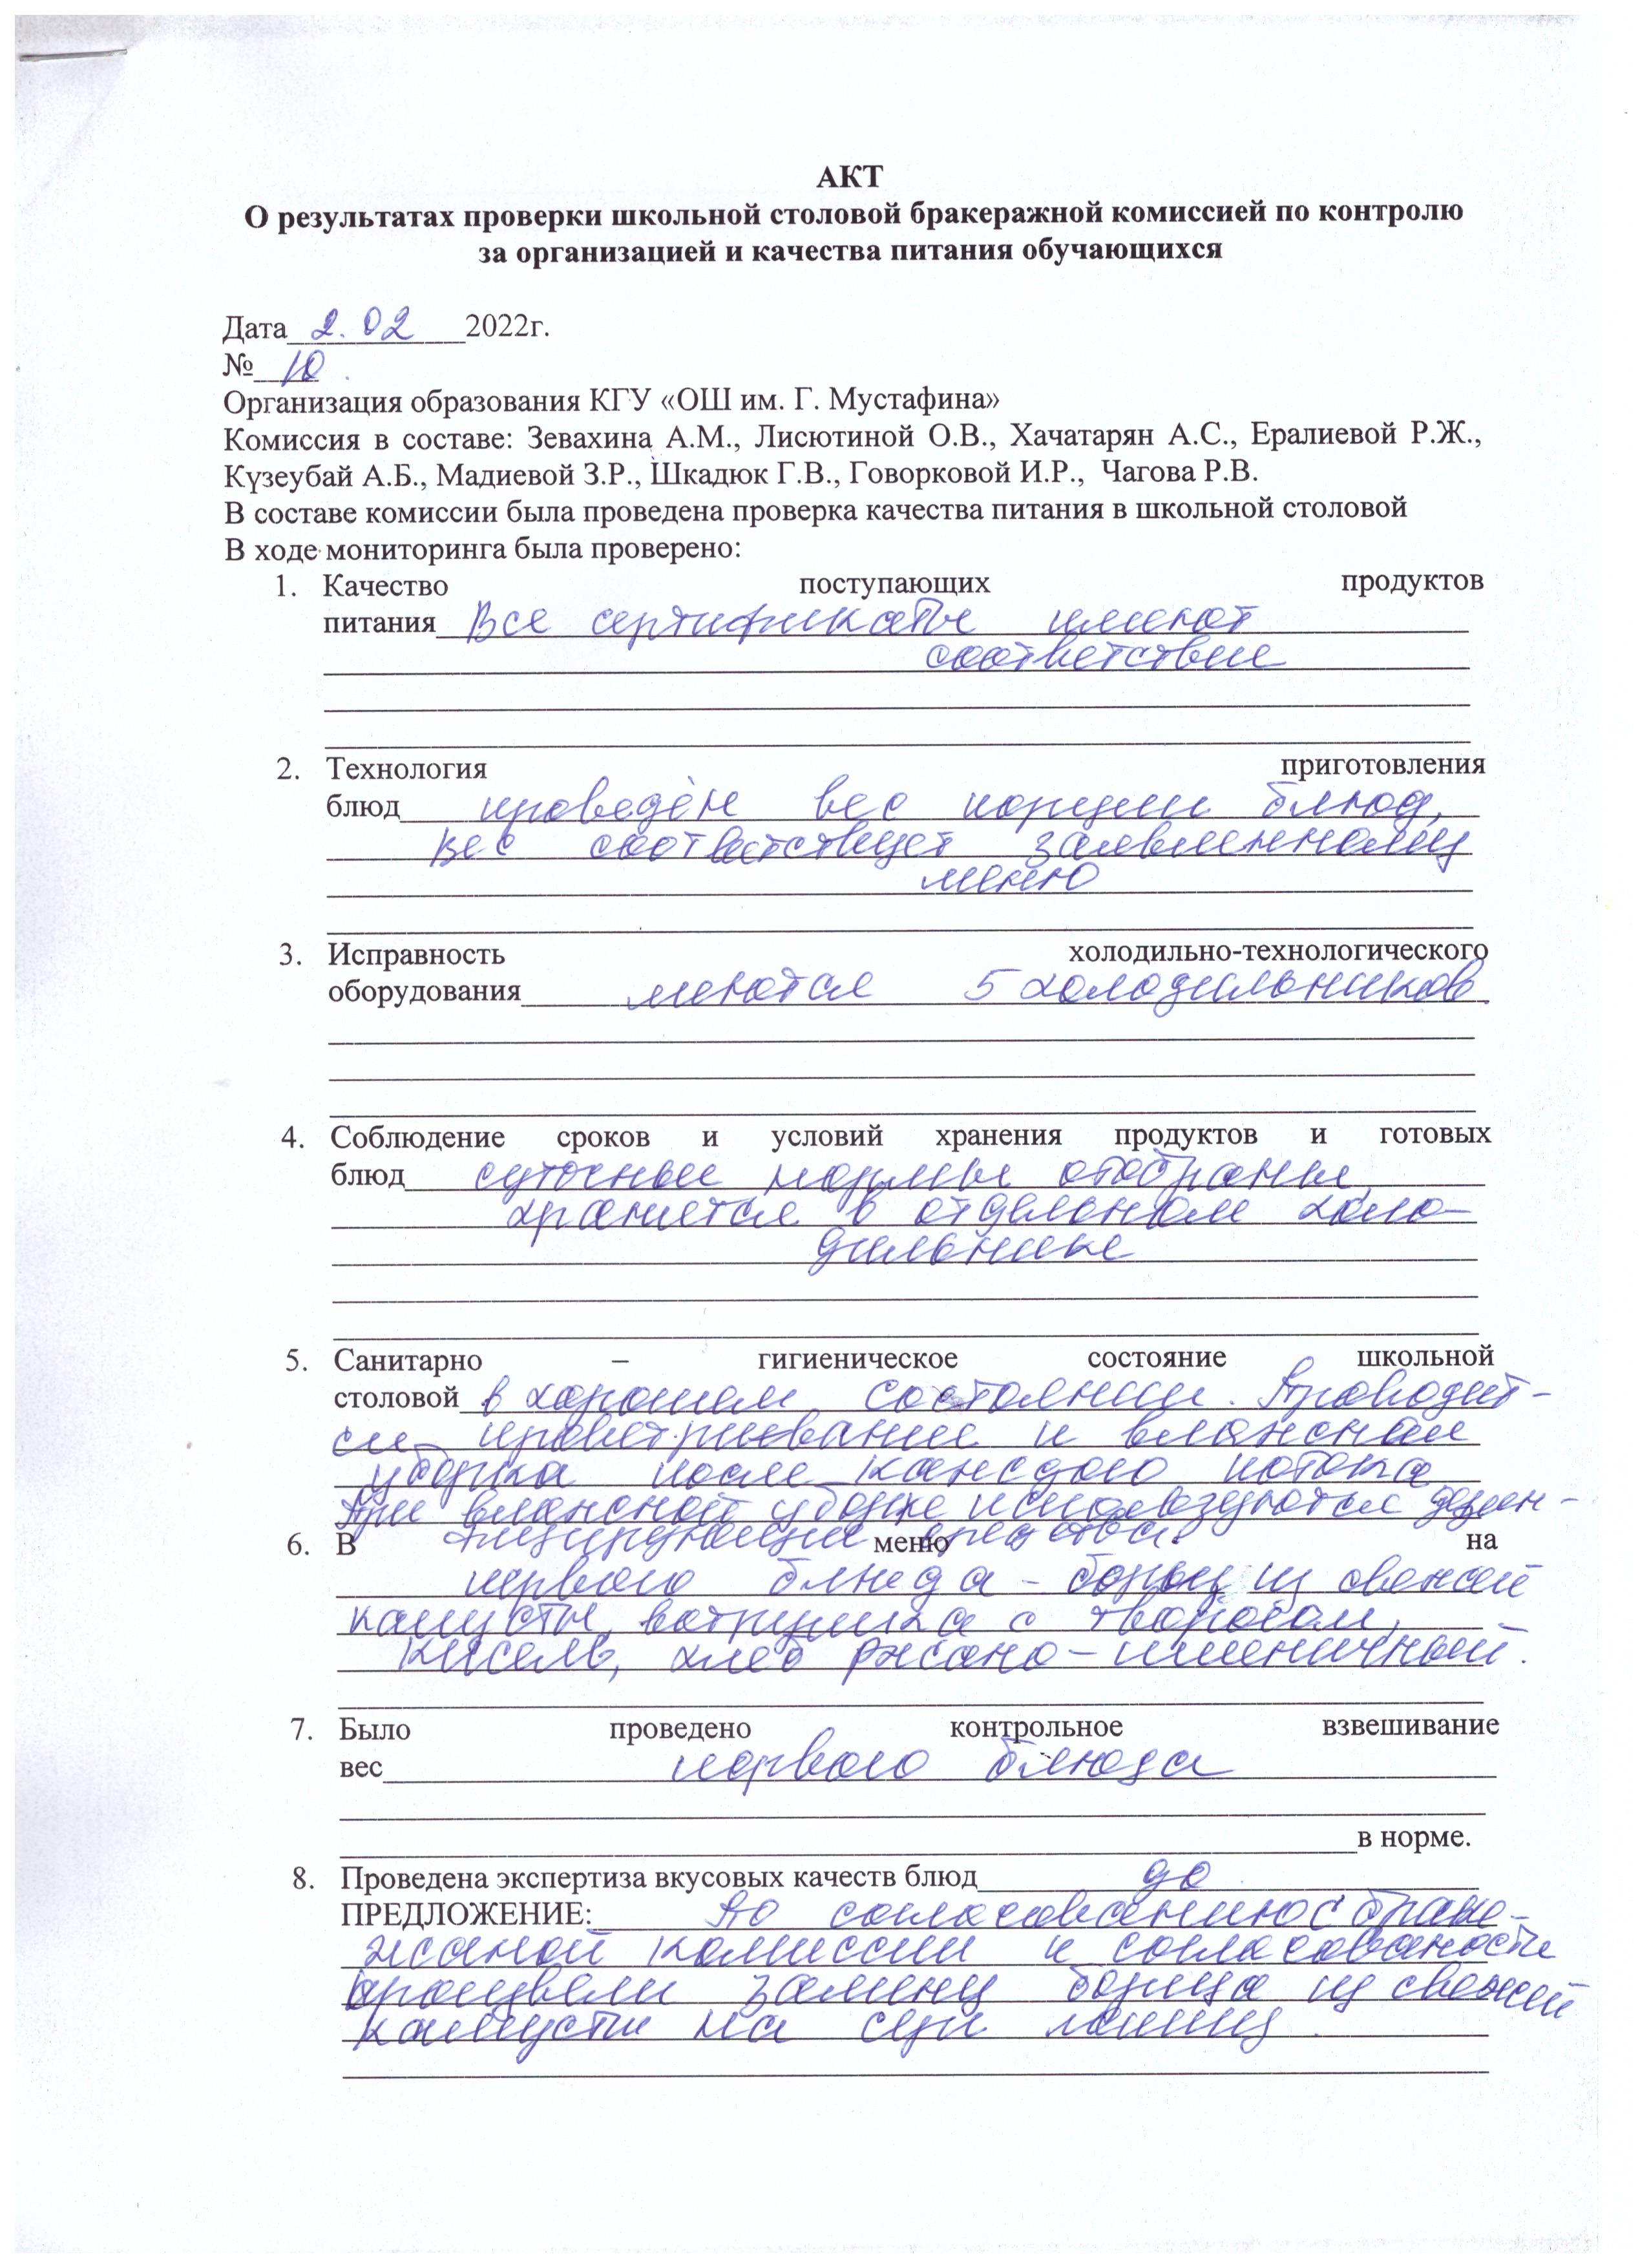 АКТ
О результатах проверки школьной столовой бракеражной комиссией по контролю
за организацией и качества питания обучающихся
Дата 2.02 2022г.
№ 10
Организация образования КГУ «ОШ им. Г. Мустафина»
Комиссия в составе: Зевахина А.М., Лисютиной О.В., Хачатарян А.С., Ералиевой Р.Ж.,
Күзеубай А.Б., Мадиевой З.Р., Шкадюк Г.В., Говорковой И.Р., Чагова Р.В.
В составе комиссии была проведена проверка качества питания в школьной столовой
В ходе мониторинга была проверено:
1. Качество поступающих продуктов
питания Все сертификаты имеют
соответствие
2. Технология приготовления
блюд проведён вес порции блюд,
вес соответствует заявленному
меню
3. Исправность холодильно-технологического
оборудования меются 5 холодильников.
4. Соблюдение сроков и условий хранения продуктов и готовых
блюд суточные нормы отобраны,
хранится в отдельном холо-
дильнике
5. Санитарно – гигиеническое состояние школьной
столовой в хорошем состоянии. Проводит-
ся проветривание и влажная
уборка после каждого потока
При влажной уборке используются дезин-
фицирующие средства.
6. В меню на
первого блюда - борщ из свежей
капусты, ватрушка с творогом,
кисель, хлеб ржано-пшеничный.
7. Было проведено контрольное взвешивание
вес первого блюда
в норме.
8. Проведена экспертиза вкусовых качеств блюд да
ПРЕДЛОЖЕНИЕ: По согласованию с браке-
жаной комиссии и согласованости
замену борща из свежей
капусты на суп лапшу